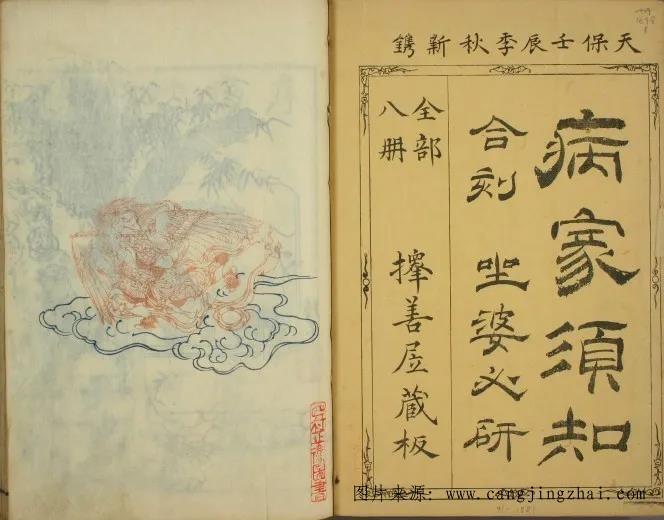 天保壬辰季秋新鐫
病家須知
合刻 坐婆必研
全部
八冊
擇善居蔵板
图片来源: www.cangjingzhai.com